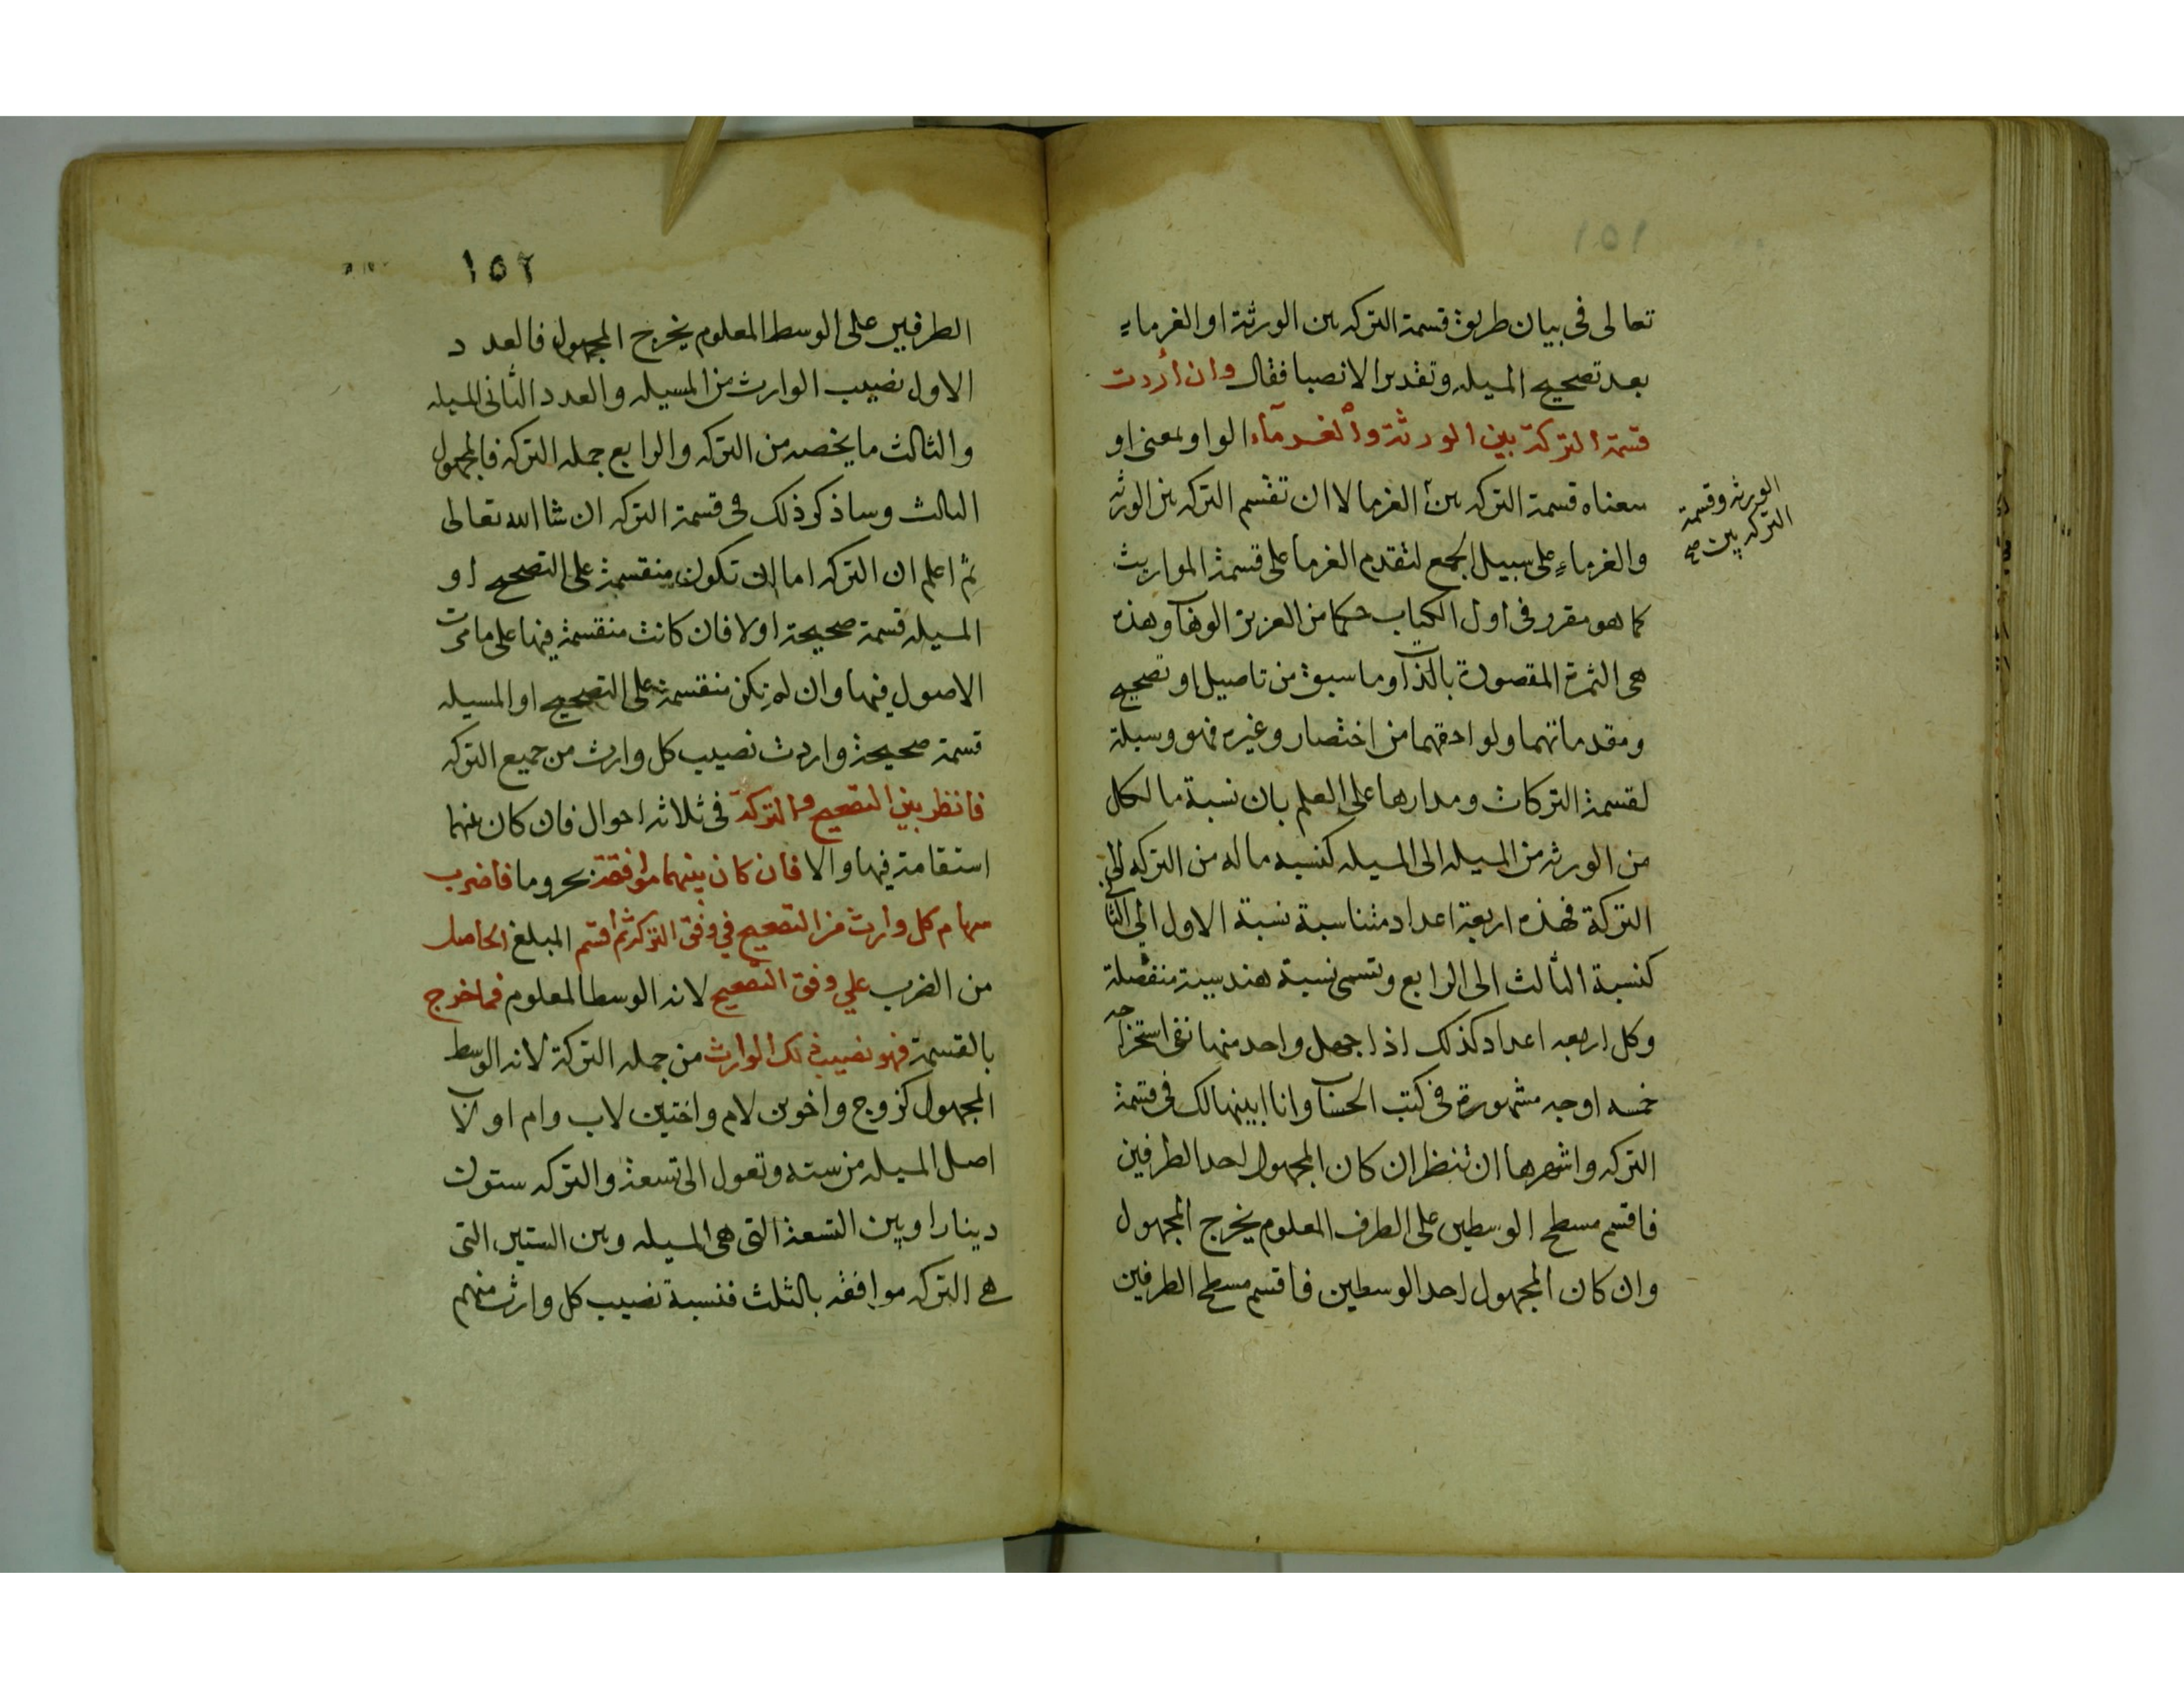 ١٥١
تعالى فى بيان طريق قسمة التركه بين الورثة او الغرماء
بعد تصحيح المسيله وتقدير الانصبا فقال وان أردت
قسمة التركة بين الورثة وألغرمآء الواو بمعنى او
معناه قسمة التركه بين الغرما لا ان تقسم التركه بين الورثه
الورثه وقسمة
التركه بين صح
والغرماء على سبيل الجمع لتقدم الغرما على قسمة المواريث
كما هو مقرر فى اول الكتاب حكما من العزيز الوهاب وهذه
هى الثمرة المقصودة بالذات وما سبق من تاصيل او تصحيح
ومقدماتهما ولواحقهما من اختصار وغيره فهو وسيلة
لقسمة التركات ومدارها على العلم بان نسبة ما لكل
من الورثه من المسيله الى المسيله كنسبه ماله من التركه الى
التركة فهذه اربعة اعداد متناسبة نسبة الاول الى الثانى
كنسبة الثالث الى الرابع وتسمى نسبة هندسية منفصلة
وكل اربعه اعداد كذلك اذا جهل واحد منها ففى استخراجه
خمسه اوجه مشهورة فى كتب الحساب وانا ابينها لك فى قسمة
التركه واشهرها ان تنظر ان كان المجهول احد الطرفين
فاقسم مسطح الوسطين على الطرف المعلوم يخرج المجهول
وان كان المجهول احد الوسطين فاقسم مسطح الطرفين
١٥٢
الطرفين على الوسط المعلوم يخرج المجهول فالعدد
الاول نصيب الوارث من المسيله والعدد الثانى المسيله
والثالث ما يخصه من التركه والرابع جمله التركه فالمجهول
الثالث وساذكر ذلك فى قسمة التركه ان شا الله تعالى
ثم اعلم ان التركه اما ان تكون منقسمة على التصحيح او
المسيله قسمة صحيحة اولا فان كانت منقسمة فيها على ما مرت
الاصول فيها وان لم تكن منقسمة على التصحيح او المسيله
قسمة صحيحة واردت نصيب كل وارث من جميع التركه
فانظر بين التصحيح والتركة فى ثلاثه احوال فان كان بينهما
استقامة فيها والا فان كان بينهما موافقة بجزو ما فاضرب
سهام كل وارث من التصحيح في وفق التركة ثم اقسم المبلغ الحاصل
من الضرب علي وفق التصحيح لانه الوسط المعلوم فما خرج
بالقسمة فهو نصيب ذلك الوارث من جمله التركة لانه الوسط
المجهول كزوج واخوين لام واختين لاب وام او لاب
اصل المسيله من سته وتعول الى تسعة والتركه ستون
دينارا وبين التسعة التى هى المسيله وبين الستين التى
هى التركه موافقه بالثلث فنسبة نصيب كل وارث منهم